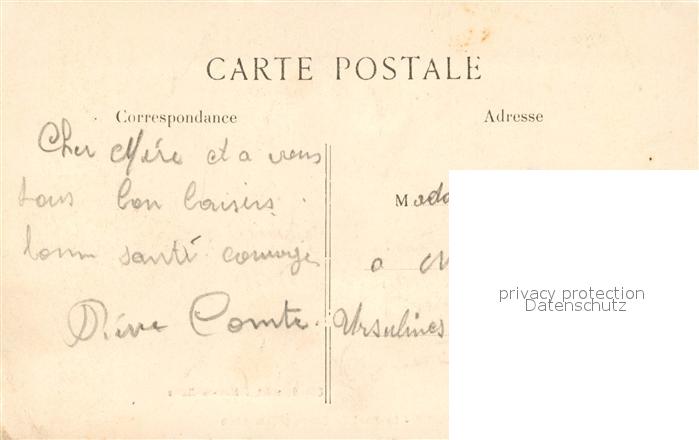 CARTE POSTALE
Correspondance
Adresse
Cher Mére et a vous
tous bon baisers.
bonn santé courage
Comte.
Mada
a
Ursulines
privacy protection
Datenschutz